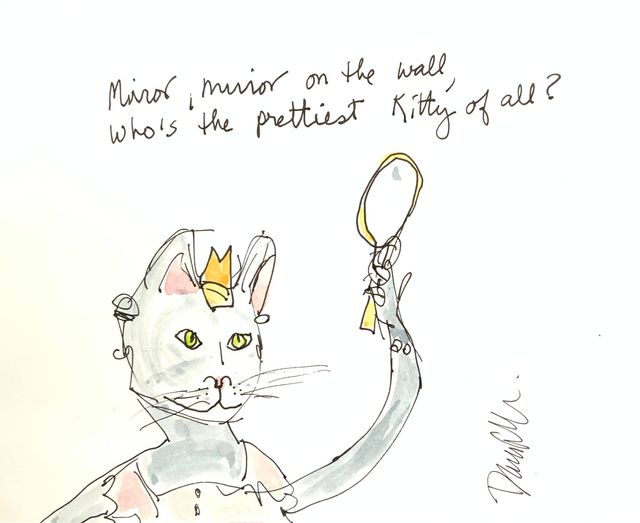 Mirror, mirror on the wall,
Who's the prettiest Kitty of all?